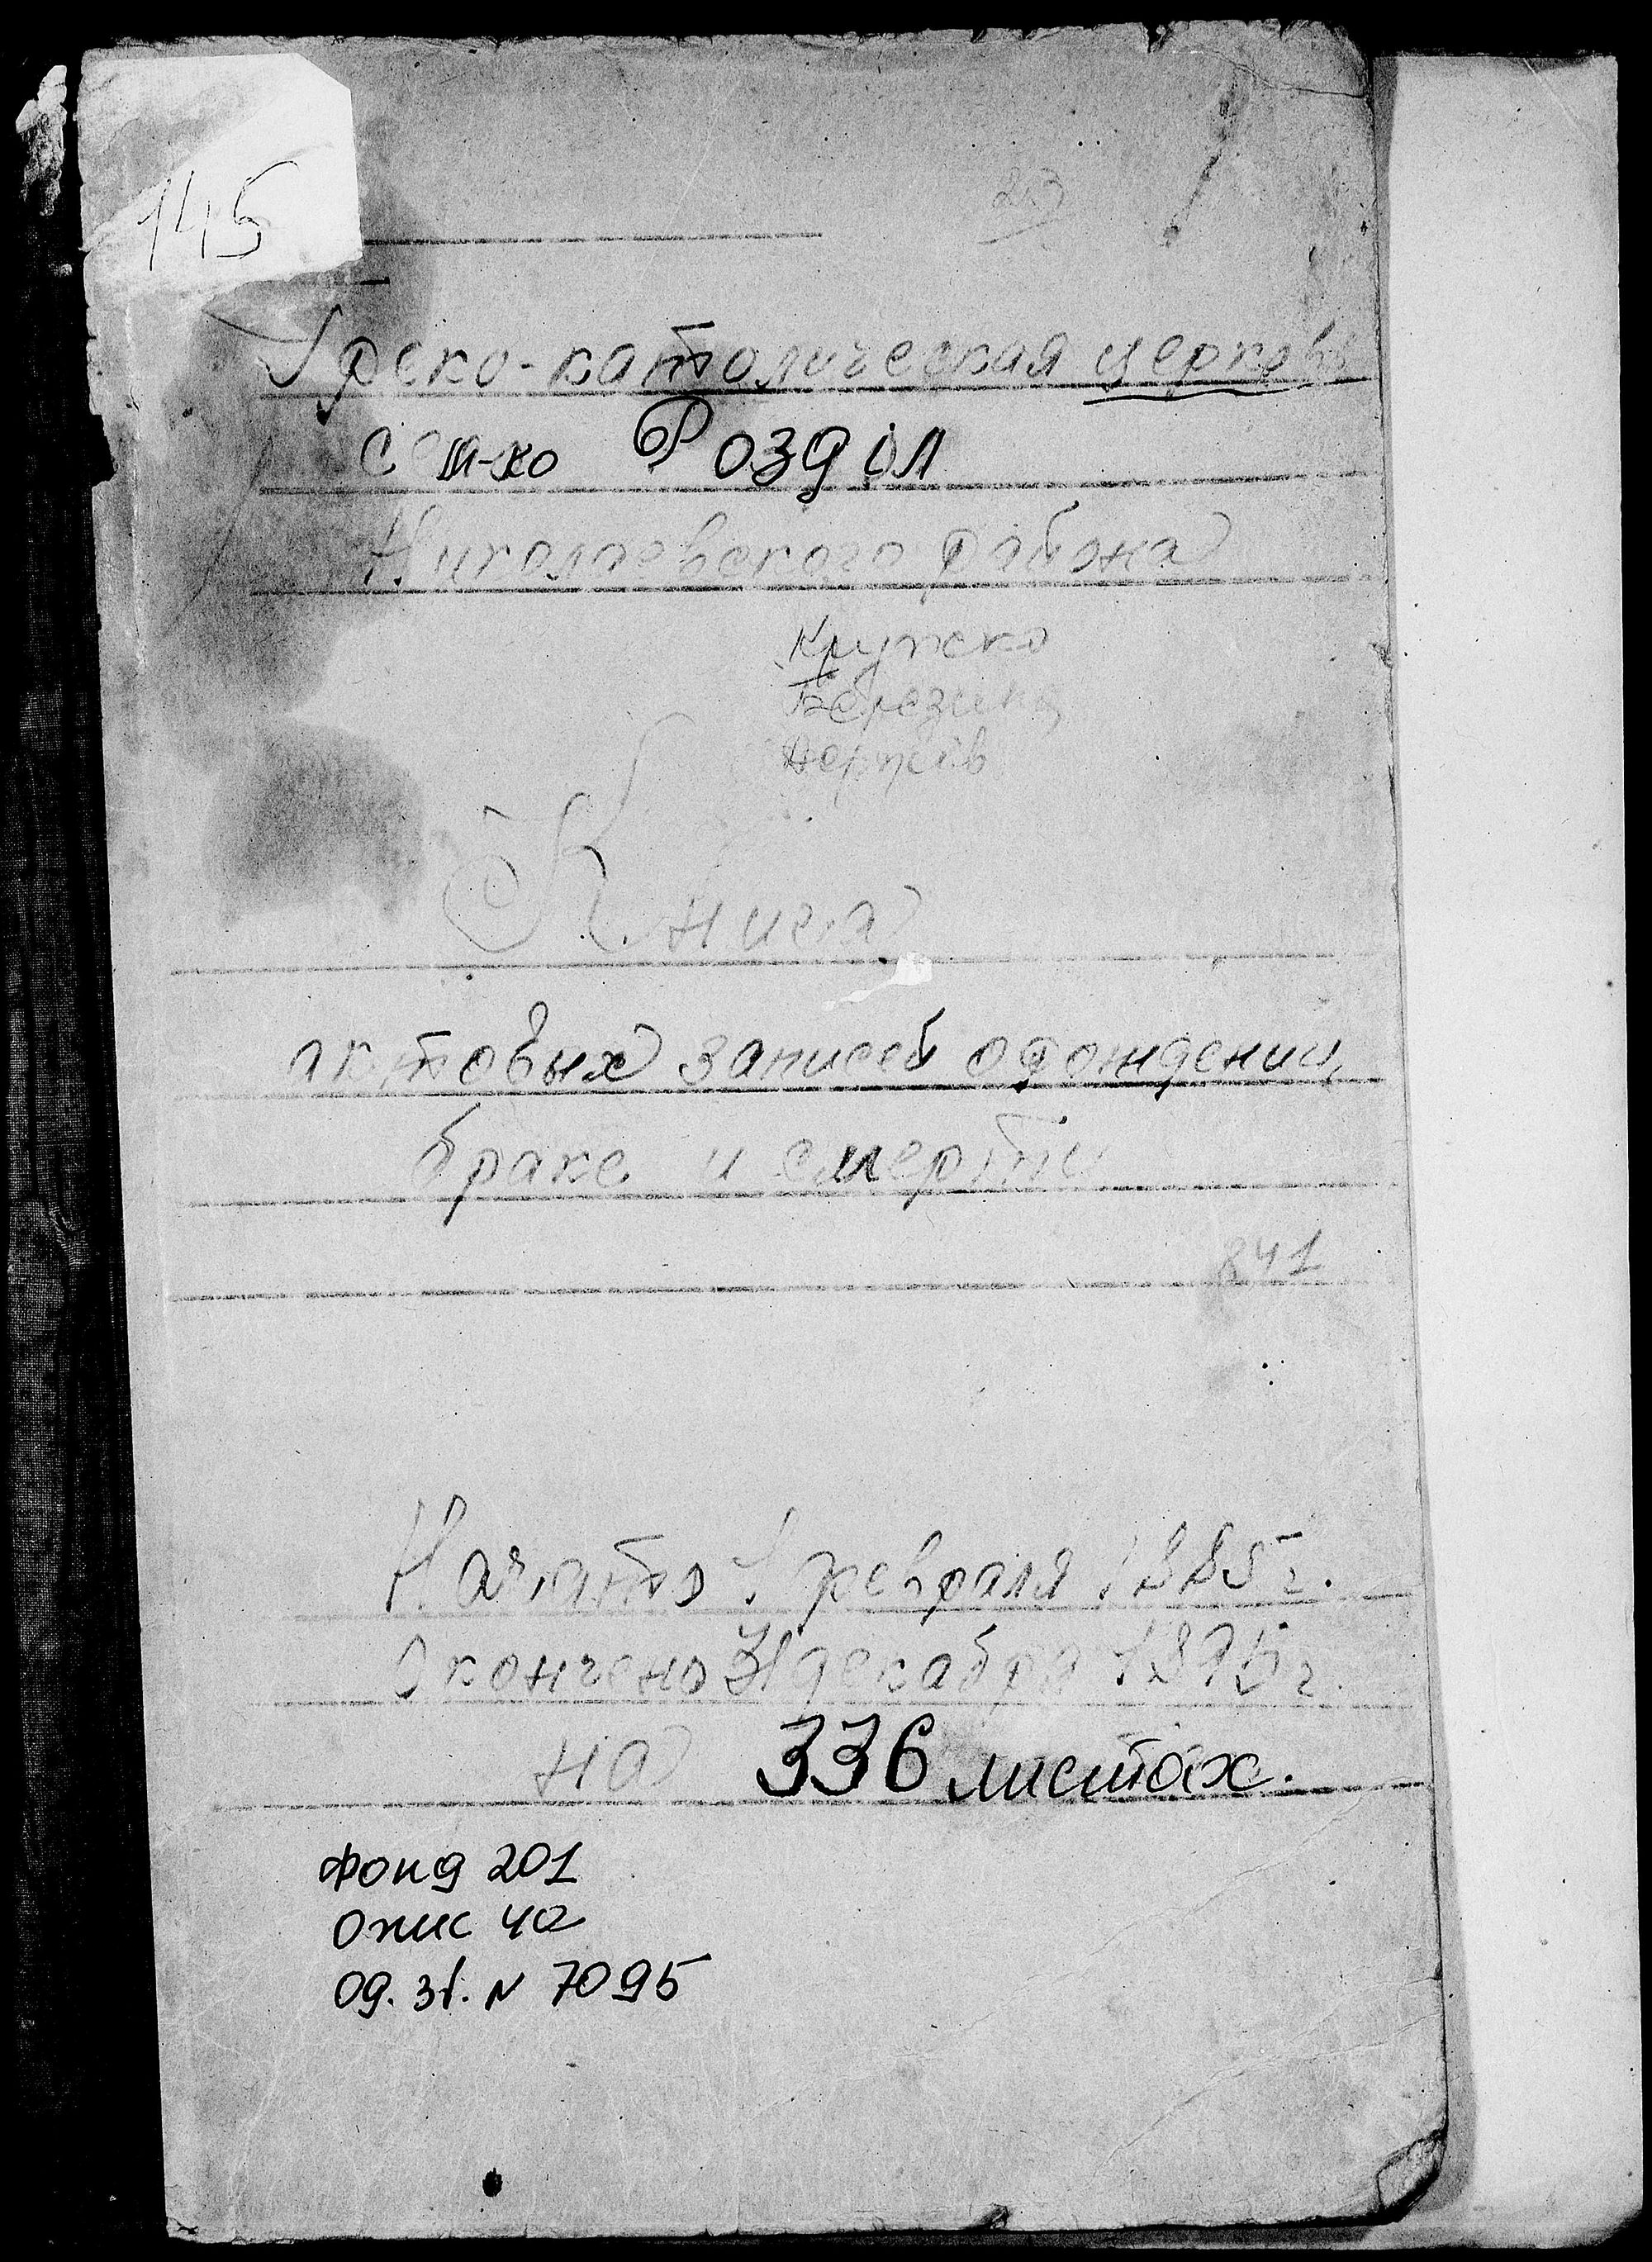 145
23
Греко-католическая церковь
с м-ко Роздiл
Николаевского района
Крупско
Березина
Держiв
Книга
актовых записей о рождении,
браке и смерти
841
Начато 1 февраля 1885 г.
Окончено 31 декабря г.
на 336 листах.
фонд 201
опис 4а
од. зб. N 7095